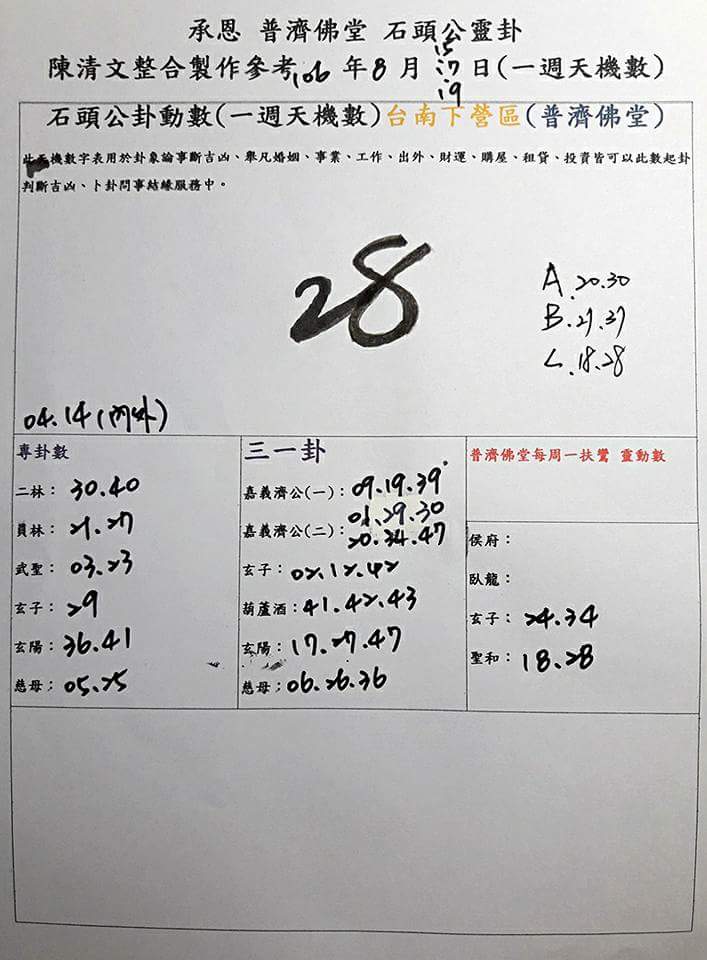 承恩 普濟佛堂 石頭公靈卦
陳清文整合製作參考106 年8 月 15 17 19 日(一週天機數)
石頭公卦動數(一週天機數)台南下營區(普濟佛堂)
此天機數字表用於卦象論事斷吉凶、舉凡婚姻、事業、工作、出外、財運、購屋、租貸、投資皆可以此數起卦
判斷吉凶、卜卦問事結緣服務中。
28
A.20.30
B.27.37
C.18.28
04.14(內外)
專卦數
二林: 30.40
員林: 21.27
武聖: 03.23
玄子: 29
玄陽: 36.41
慈母; 05.25
三一卦
嘉義濟公(一): 09.19.39
嘉義濟公(二): 01.29.30
20.34.47
玄子: 02.12.42
葫蘆酒: 41.42.43
玄陽: 17.27.47
慈母; 06.26.36
普濟佛堂每周一扶鸞 靈動數
侯府:
臥龍:
玄子: 24.34
聖和: 18.28